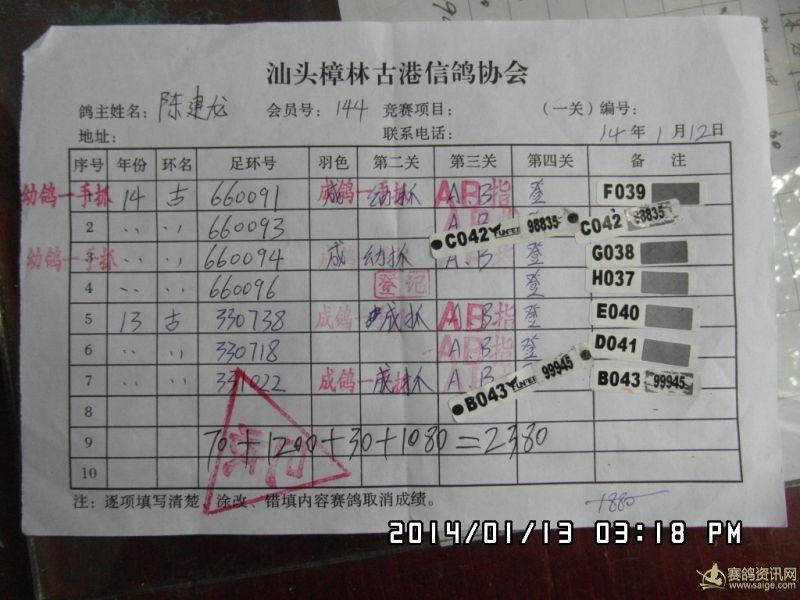 汕头樟林古港信鸽协会
鸽主姓名: 陈建龙 会员号: 144 竞赛项目: (一关) 编号:
地址: 联系电话: 14 年 1 月 12 日
序号 年份 环名 足环号 羽色 第二关 第三关 第四关 备 注
幼鸽一手抓 14 古 660091 成鸽一 幼抓 A.B 指 登 F039
2 〃 〃 660093 A.B 登 C042 98835 C042 98835
幼鸽一手抓 3 〃 〃 660094 成 幼抓 A.B 登 G038
4 〃 〃 660096 登记 登 H037
5 13 古 330738 成鸽一 成抓 A.B 指 登 E040
6 〃 〃 330718 A.B 指 登 D041
7 〃 〃 331022 成鸽一 成抓 A.B B043 99945 B043 99945
8
9 70+1200+30+1080=2380
10
注: 逐项填写清楚, 涂改、错填内容赛鸽取消成绩。
1880
2014/01/13 03:18 PM
赛鸽资讯网
www.saige.com